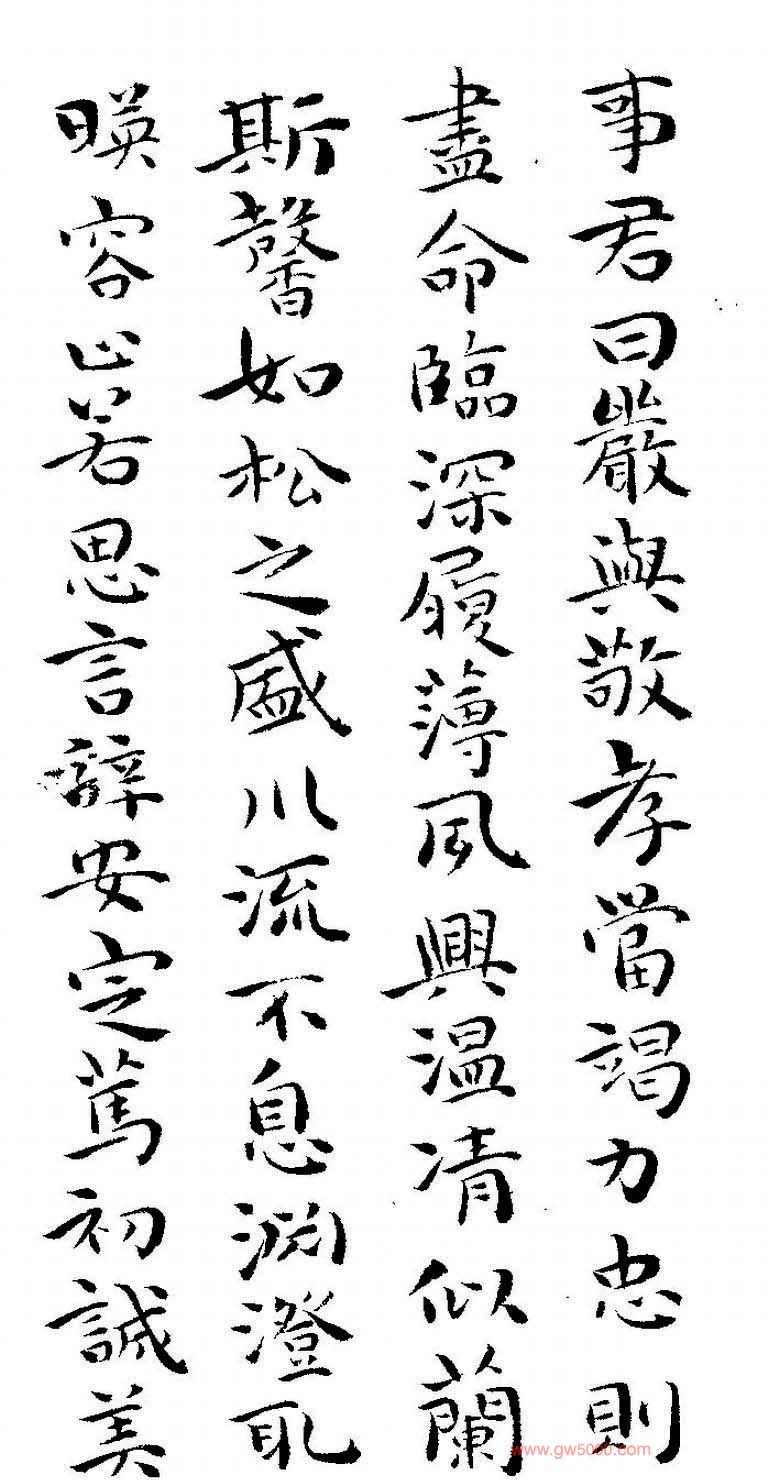 事君曰嚴與敬孝當竭力忠則
盡命臨深履薄夙興温凊似蘭
斯馨如松之盛川流不息淵澄取
暎容止若思言辭安定篤初誠美
www.gw5000.com